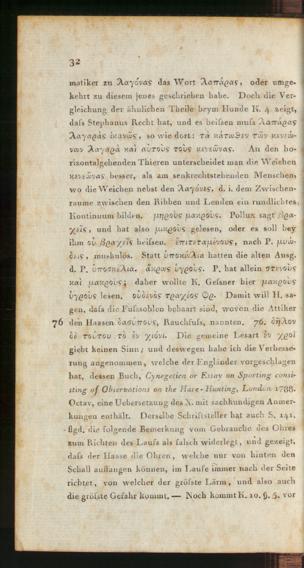 32
matiker zu λαγόνας das Wort λαπάρας, oder umge-
kehrt zu diesem jenes geschrieben habe. Doch die Ver-
gleichung der ähnlichen Theile beym Hunde K. 4 zeigt,
daſs Stephanus Recht hat, und es heiſsen muſs λαπάρας
λαγαρὰς ἱκανῶς, so wie dort: τὰ κάτωθεν τῶν κενεώ-
νων λαγαρὰ καὶ αὐτοὺς τοὺς κενεῶνας. An den ho-
rizontalgehenden Thieren unterscheidet man die Weichen
κενεῶνας besser, als am senkrechtstehenden Menschen,
wo die Weichen nebst den λαγόνες, d. i. dem Zwischen-
raume zwischen den Ribben und Lenden ein rundlichtes
Kontinuum bilden. μηροὺς μακροὺς. Pollux sagt βρα-
χεῖς, und hat also μικροὺς gelesen, oder es soll bey
ihm οὐ βραχεῖς heiſsen. ἐπιτεταμένους, nach P. μυώ-
δεις, muskulös. Statt ὑποκώλια hatten die alten Ausg.
d. P. ὑποσκέλια. ἄκρως ὑγροὺς. P. hat allein στενοὺς
καὶ μακροὺς; daher wollte K. Gesner hier μακροὺς
ὑγροὺς lesen. οὐδενὸς τραχίος Θρ. Damit will H. sa-
gen, daſs die Fuſssohlen behaart sind, wovon die Attiker
76 den Haasen δασύπους, Rauchfuſs, nannten. 76. δῆλον
δὲ τούτου τὸ ἐν χιόνι. Die gemeine Lesart ἐν χροὶ
giebt keinen Sinn; und deswegen habe ich die Verbesse-
rung angenommen, welche der Engländer vorgeschlagen
hat, dessen Buch, Cynegetica or Essay on Sporting consi-
sting of Observations on the Hare-Hunting, London 1788.
Octav, eine Uebersetzung des X. mit sachkundigen Anmer-
kungen enthält. Derselbe Schriftsteller hat auch S. 141.
flgd. die folgende Bemerkung vom Gebrauche des Ohres
zum Richten des Laufs als falsch widerlegt, und gezeigt,
daſs der Haase die Ohren, welche nur von hinten den
Schall auffangen können, im Laufe immer nach der Seite
richtet, von welcher der gröſste Lärm, und also auch
die gröſste Gefahr kommt. — Noch kommt K. 10. §. 5. vor